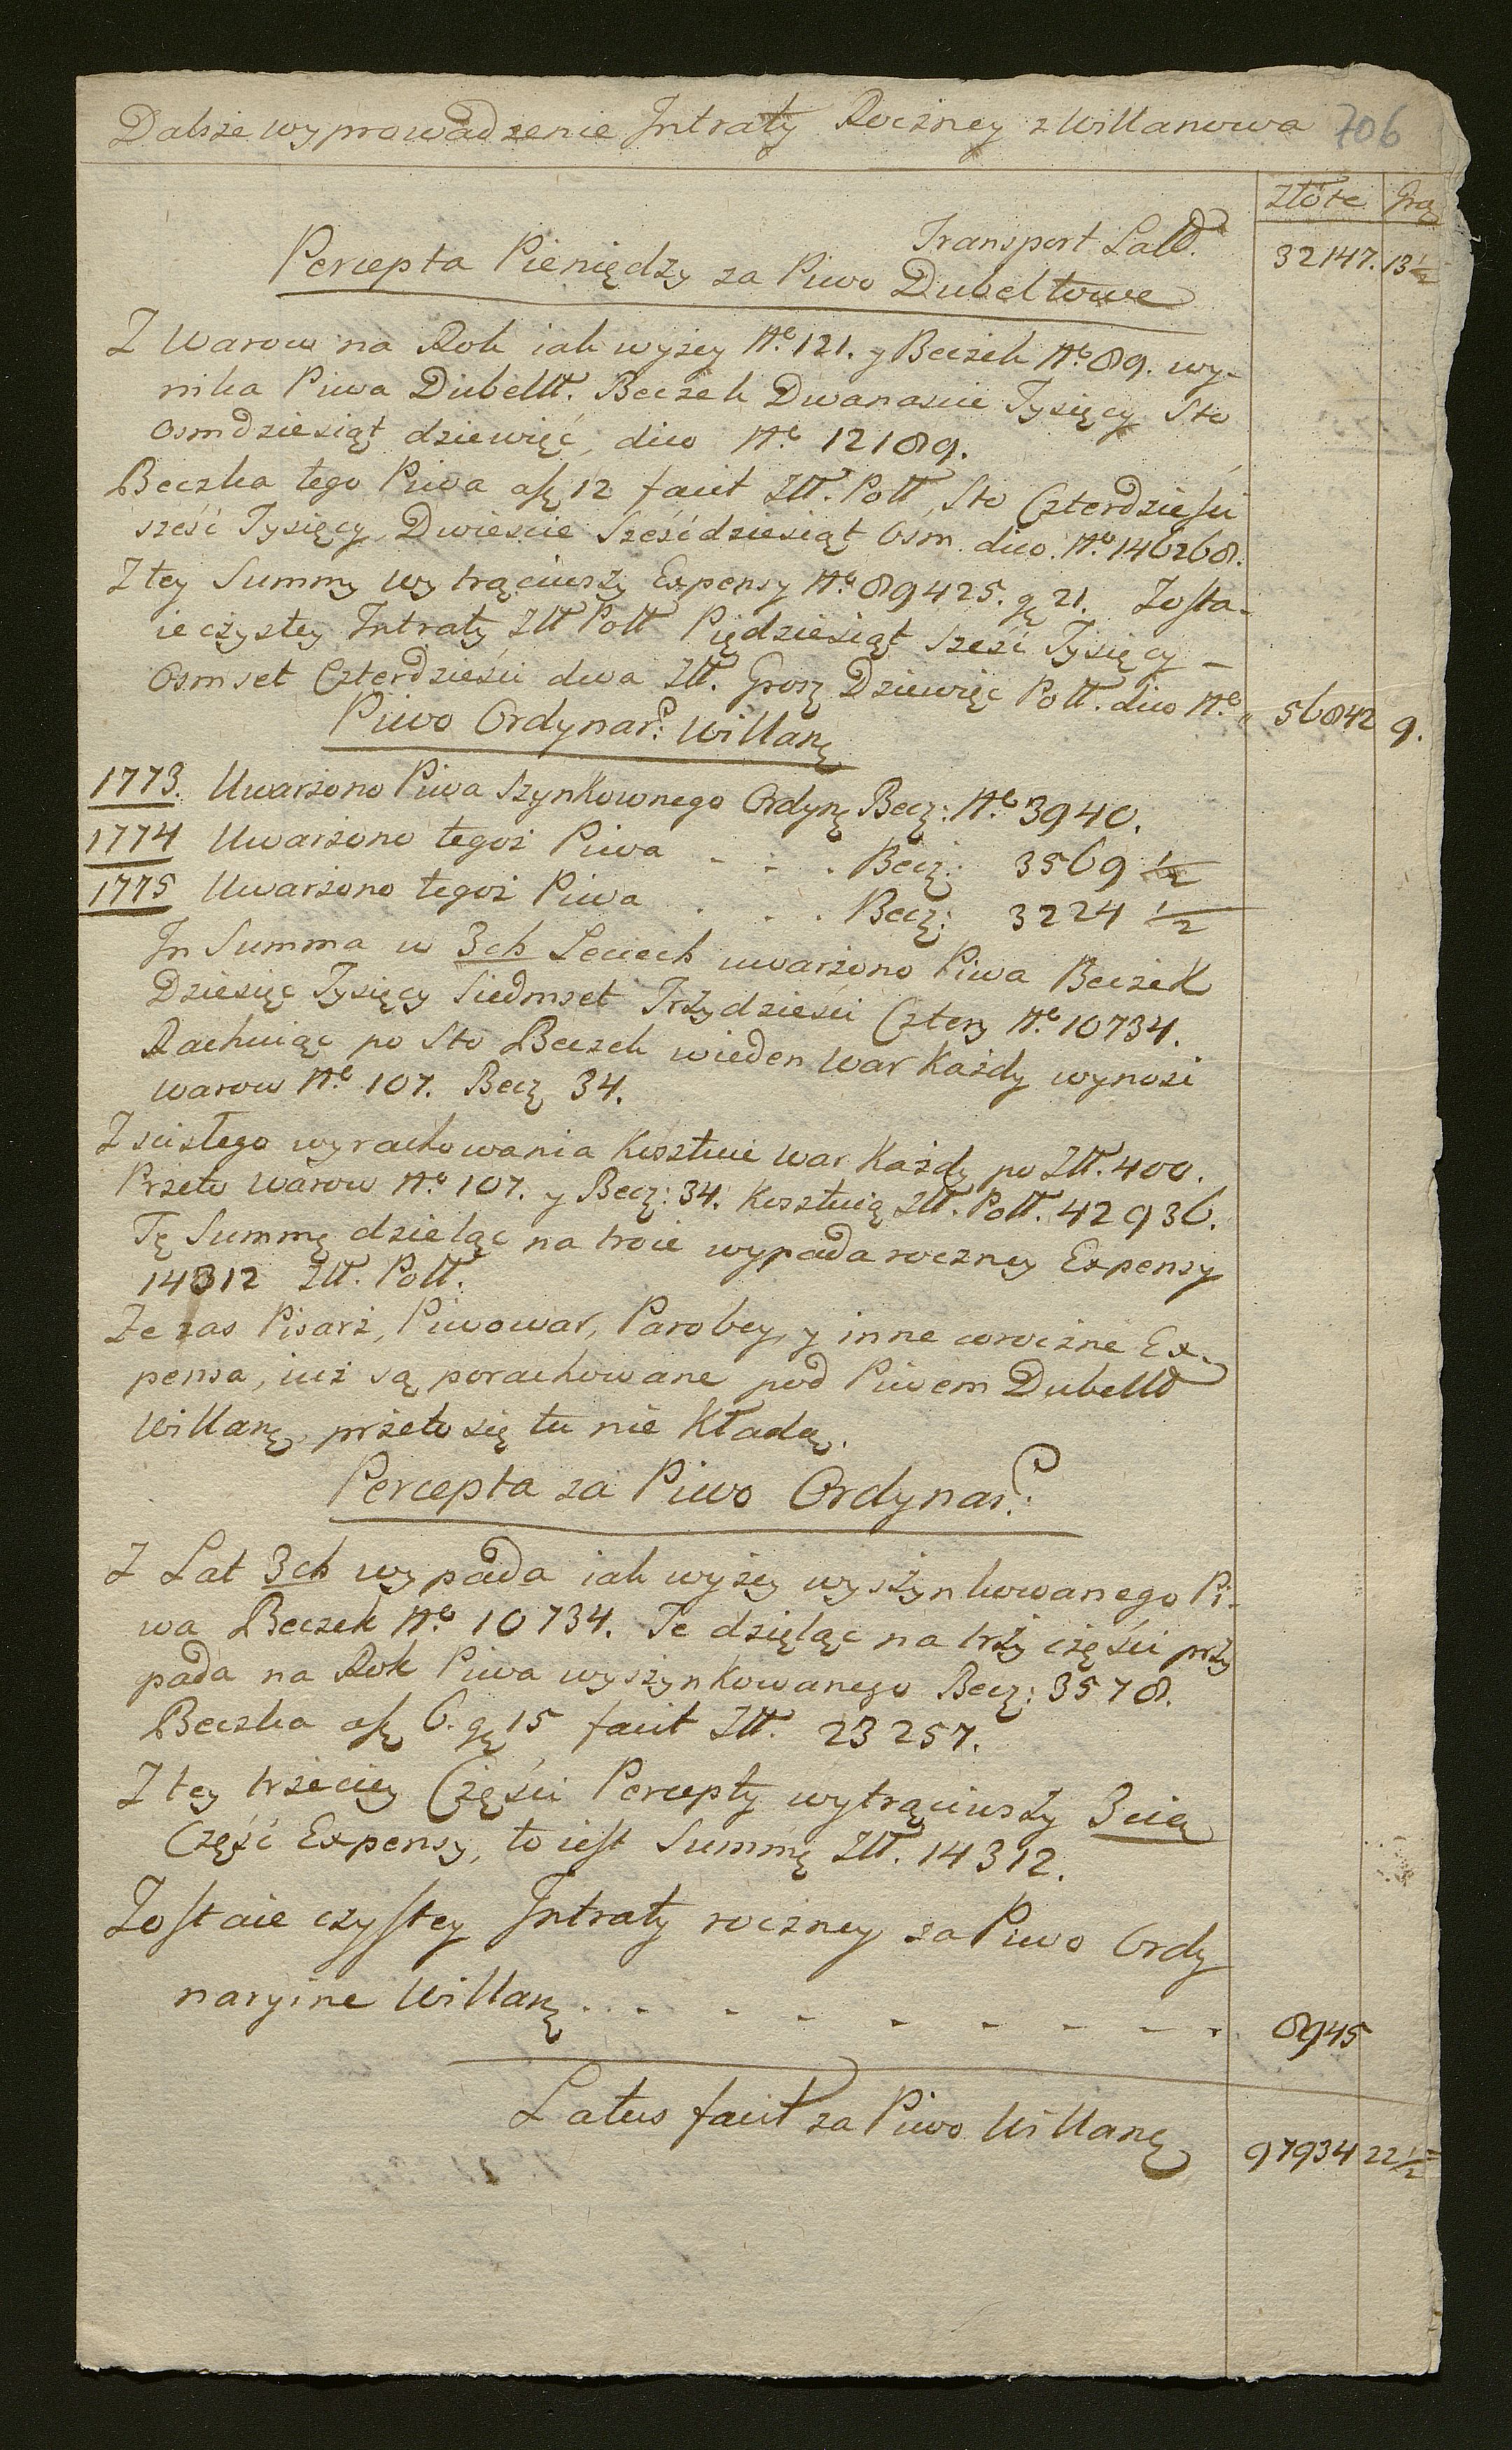 Dalsze wyprowadzenie Intraty Roczney z Willanowa 706
Złote Gro
Transport Latt. 32147. 13½
Percepta Pieniędzy za Piwo Dubeltowe
Z Warow na Rok iak wyżey No. 121. y Beczek No 89. wy-
nika Piwa Dubellt. Beczek Dwanascie Tysięcy Sto
Osmdziesiąt dziewięć, dico No 12189.
Beczka tego Piwa a fł 12 facit Złł. Poll Sto Czterdzieści
sześć Tysięcy Dwiescie Sześćdziesiąt Osm. dico. No. 146268.
Z tey Summy wytrąciwszy Expensy No 89425. gr 21. Zosta-
ie czystey Intraty Złł Poll Pięćdziesiąt Sześć Tysięcy -
Osmset Czterdzieści dwa Złł. Grosz Dziewięć Poll. dico No. 56842 9.
Piwo Ordynar: Willan
1773. Uwarzono Piwa Szynkownego Ordyn Becz: No. 3940.
1774 Uwarzono tegoż Piwa - - . Becz: 3569 ½
1775 Uwarzono tegoż Piwa . . . Becz: 3224 ½
In Summa w 3ch Leciech uwarzono Piwa Beczek
Dziesięc Tysięcy Siedmset Trzydzieści Cztery No 10734.
Rachuiąc po Sto Beczek wieden War Każdy wynosi
warow No 107. Becz 34.
Z scisłego wyrachowania Kosztuie War Każdy po Złł. 400.
Przeto Warow No. 107. y Becz: 34. Kosztuią Złł. Poll. 42936.
Tę Summę dzieląc na troie wypada roczney Expensy
14312 Złł. Poll.
Ze zas Pisarz, Piwowar, Parobcy, y inne coroczne Ex-
pensa, iuż są porachowane pod Piwem Dubelld
Willan przeto się tu nie Kładą.
Percepta za Piwo Ordynar:
Z Lat 3ch wypada iak wyżey wyszynkowanego Pi-
wa Beczek No. 10734. Te dzieląc na trzy części przy
pada na Rok Piwa wyszynkowanego Becz: 3578.
Beczka a fł 6. gr 15 facit Złł. 23257.
Z tey trzeciey Części Percepty wytrąciwszy 3cią
Część Expensy, to iest Summę Złł. 14312.
Zostaie czystey Intraty roczney za Piwo Ordy
naryine Willan . . - - - - - - - . 8945
Latus facit za Piwo Willan 97934 22½